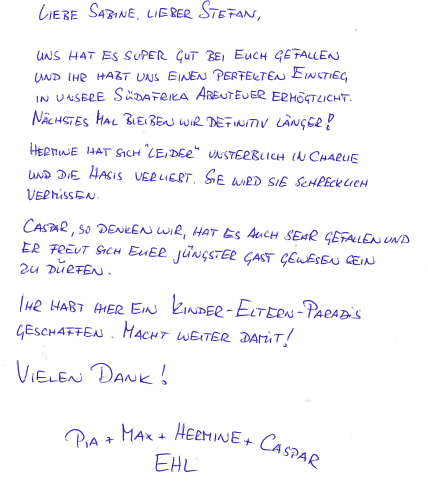 LIEBE SABINE, LIEBER STEFAN,
UNS HAT ES SUPER GUT BEI EUCH GEFALLEN
UND IHR HABT UNS EINEN PERFEKTEN EINSTIEG
IN UNSERE SÜDAFRIKA ABENTEUER ERMÖGTLICHT.
NÄCHSTES MAL BLEIBEN WIR DEFINITIV LÄNGER!
HERMINE HAT SICH "LEIDER" UNSTERBLICH IN CHARLIE
UND DIE HASIS VERLIEBT. SIE WIRD SIE SCHRECKLICH
VERMISSEN.
CASPAR, SO DENKEN WIR, HAT ES AUCH SEHR GEFALLEN UND
ER FREUT SICH EUER JÜNGSTER GAST GEWESEN SEIN
ZU DÜRFEN.
IHR HABT HIER EIN KINDER-ELTERN-PARADIS
GESCHAFFEN. MACHT WEITER DAMIT!
VIELEN DANK!
PIA + MAX + HERMINE + CASPAR
EHL